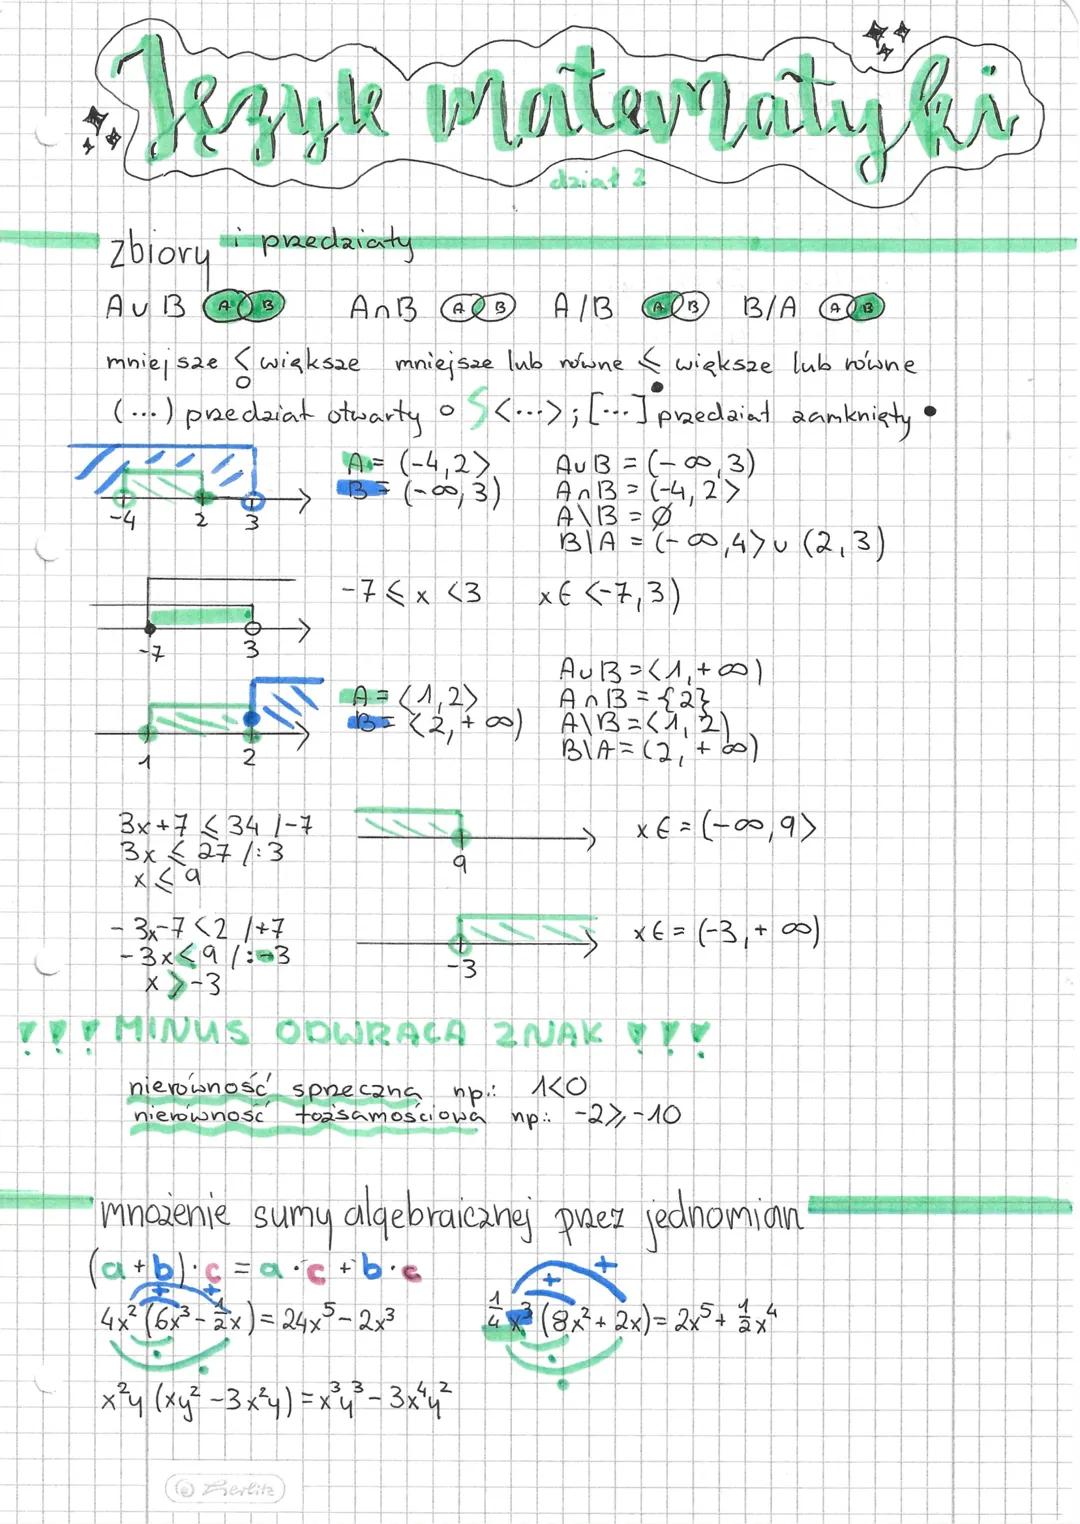 Język matematyki
dział 2
zbiory i przedziały
A∪B A B A∩B A B A/B A B B/A A B
mniejsze < większe mniejsze lub równe ≤ większe lub równe
(...) przedział otwarty ○ <...>; [...] przedział zamknięty •
A = (-4,2> A∪B = (-∞,3)
B = (-∞,3) A∩B = (-4,2>
A\B = Ø
B\A = (-∞,4> ∪ (2,3)
-4 2 3
-7 ≤ x < 3 x ∈ <-7,3)
-7 3
A∪B = <1,+∞)
A = <1,2> A∩B = {2}
B = <2,+∞) A\B = <1,2)
B\A = (2,+∞)
1 2
3x+7 ≤ 34 /-7 x ∈ = (-∞,9>
3x ≤ 27 /:3
9
x ≤ 9
-3x-7 < 2 /+7 x ∈ = (-3,+∞)
-3x < 9 /:-3
-3
x > -3
!!! MINUS ODWRACA ZNAK !!!
nierówność sprzeczna np.: 1<0
nierówność tożsamościowa np.: -2≥-10
mnożenie sumy algebraicznej przez jednomian
(a+b)·c = a·c + b·c
+ + + +
4x²(6x³ - ½x) = 24x⁵ - 2x³ ¼x³(8x² + 2x) = 2x⁵ + ½x⁴
x²y (xy² - 3x²y) = x³y³ - 3x⁴y²
Herlitz